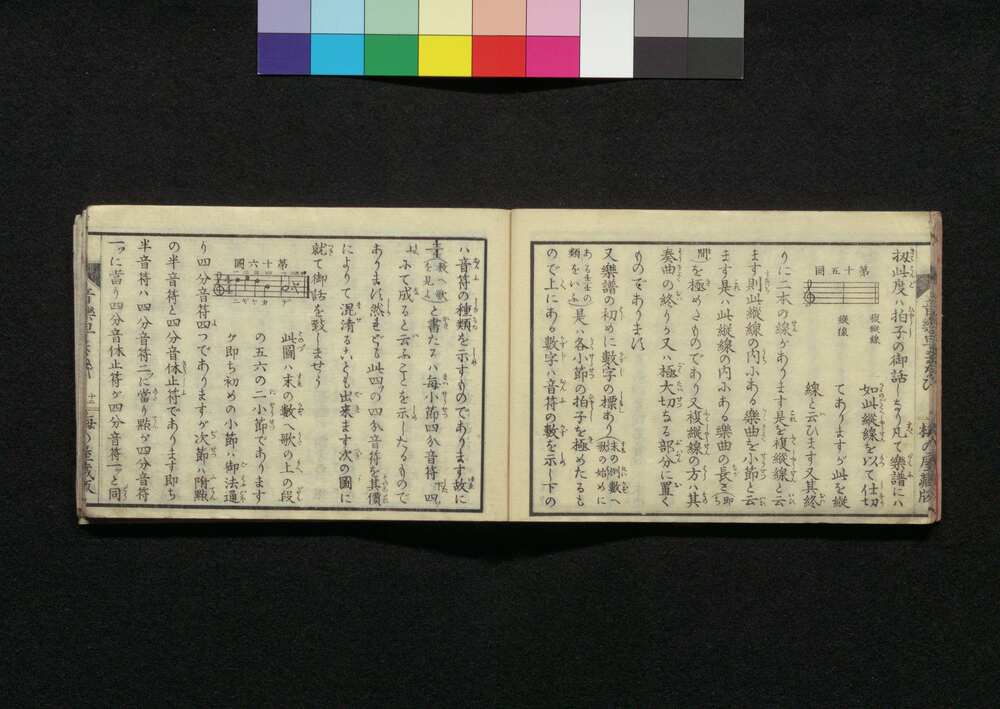 扨此度ハ拍子の御話より凡て樂譜にハ
第十五圖
複縱線
縱線
如此縱線を以て仕切
てありますが此を縱
線と云ひます又其終
りに二本の線があります是を複縱線と云
ます則此縱線の内にある樂曲を小節と云
ます是ハ此縱線の内にある樂曲の長さ即
間を極めるものであり又複縱線の方ハ其
奏曲の終り又ハ極大切なる部分に置く
ものであります
又樂譜の初めに數字の標あり
是ハ各小節の拍子を極めたるも
ので上にある數字ハ音符の數を示し下の
ハ音符の種類を示すものであります故に
數へ歌を見よ
と書たるハ毎小節四分音符四
ツにて成ると云ふことを示したるもので
あります然れども此四の四分音符を其價
によりて混淆ることも出來ます次の圖に
就て御話を致しませう
第十六圖
此圖ハ末の數へ歌の上の段
の五六の二小節であります
が即ち初めの小節ハ御法通
り四分音符四つでありますが次節ハ附點
の半音符と四分音休止符であります即ち
半音符ハ四分音符二に當り點が四分音符
一ツに當り四分音休止符が四分音符一ツと同